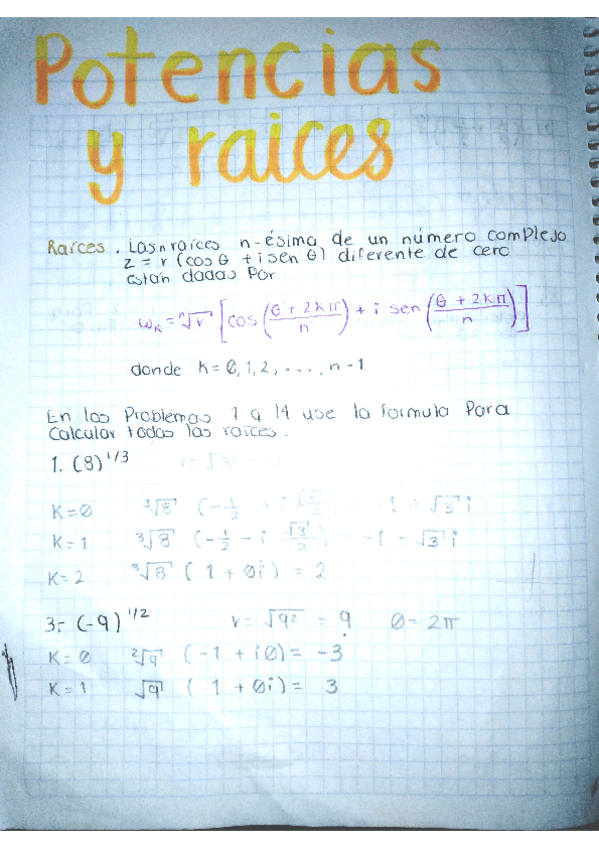 Potencias
y raices
Raíces. Las n raíces n-ésima de un número complejo
z = r (cos θ + i sen θ) diferente de cero
están dadas por
wₖ = ⁿ√r [cos (θ + 2kπ / n) + i sen (θ + 2kπ / n)]
donde k = 0, 1, 2, ..., n - 1
En los Problemas 1 a 14 use la formula para
calcular todas las raíces.
1. (8)^1/3
K=0 ³√8 (-1/2 + i √3/2) = -1 + √3 i
K=1 ³√8 (-1/2 - i √3/2) = -1 - √3 i
K=2 ³√8 (1 + 0i) = 2
3.- (-9)^1/2 r = √9² = 9 θ = 2π
K=0 ²√9 (-1 + i0) = -3
K=1 √9 (1 + 0i) = 3